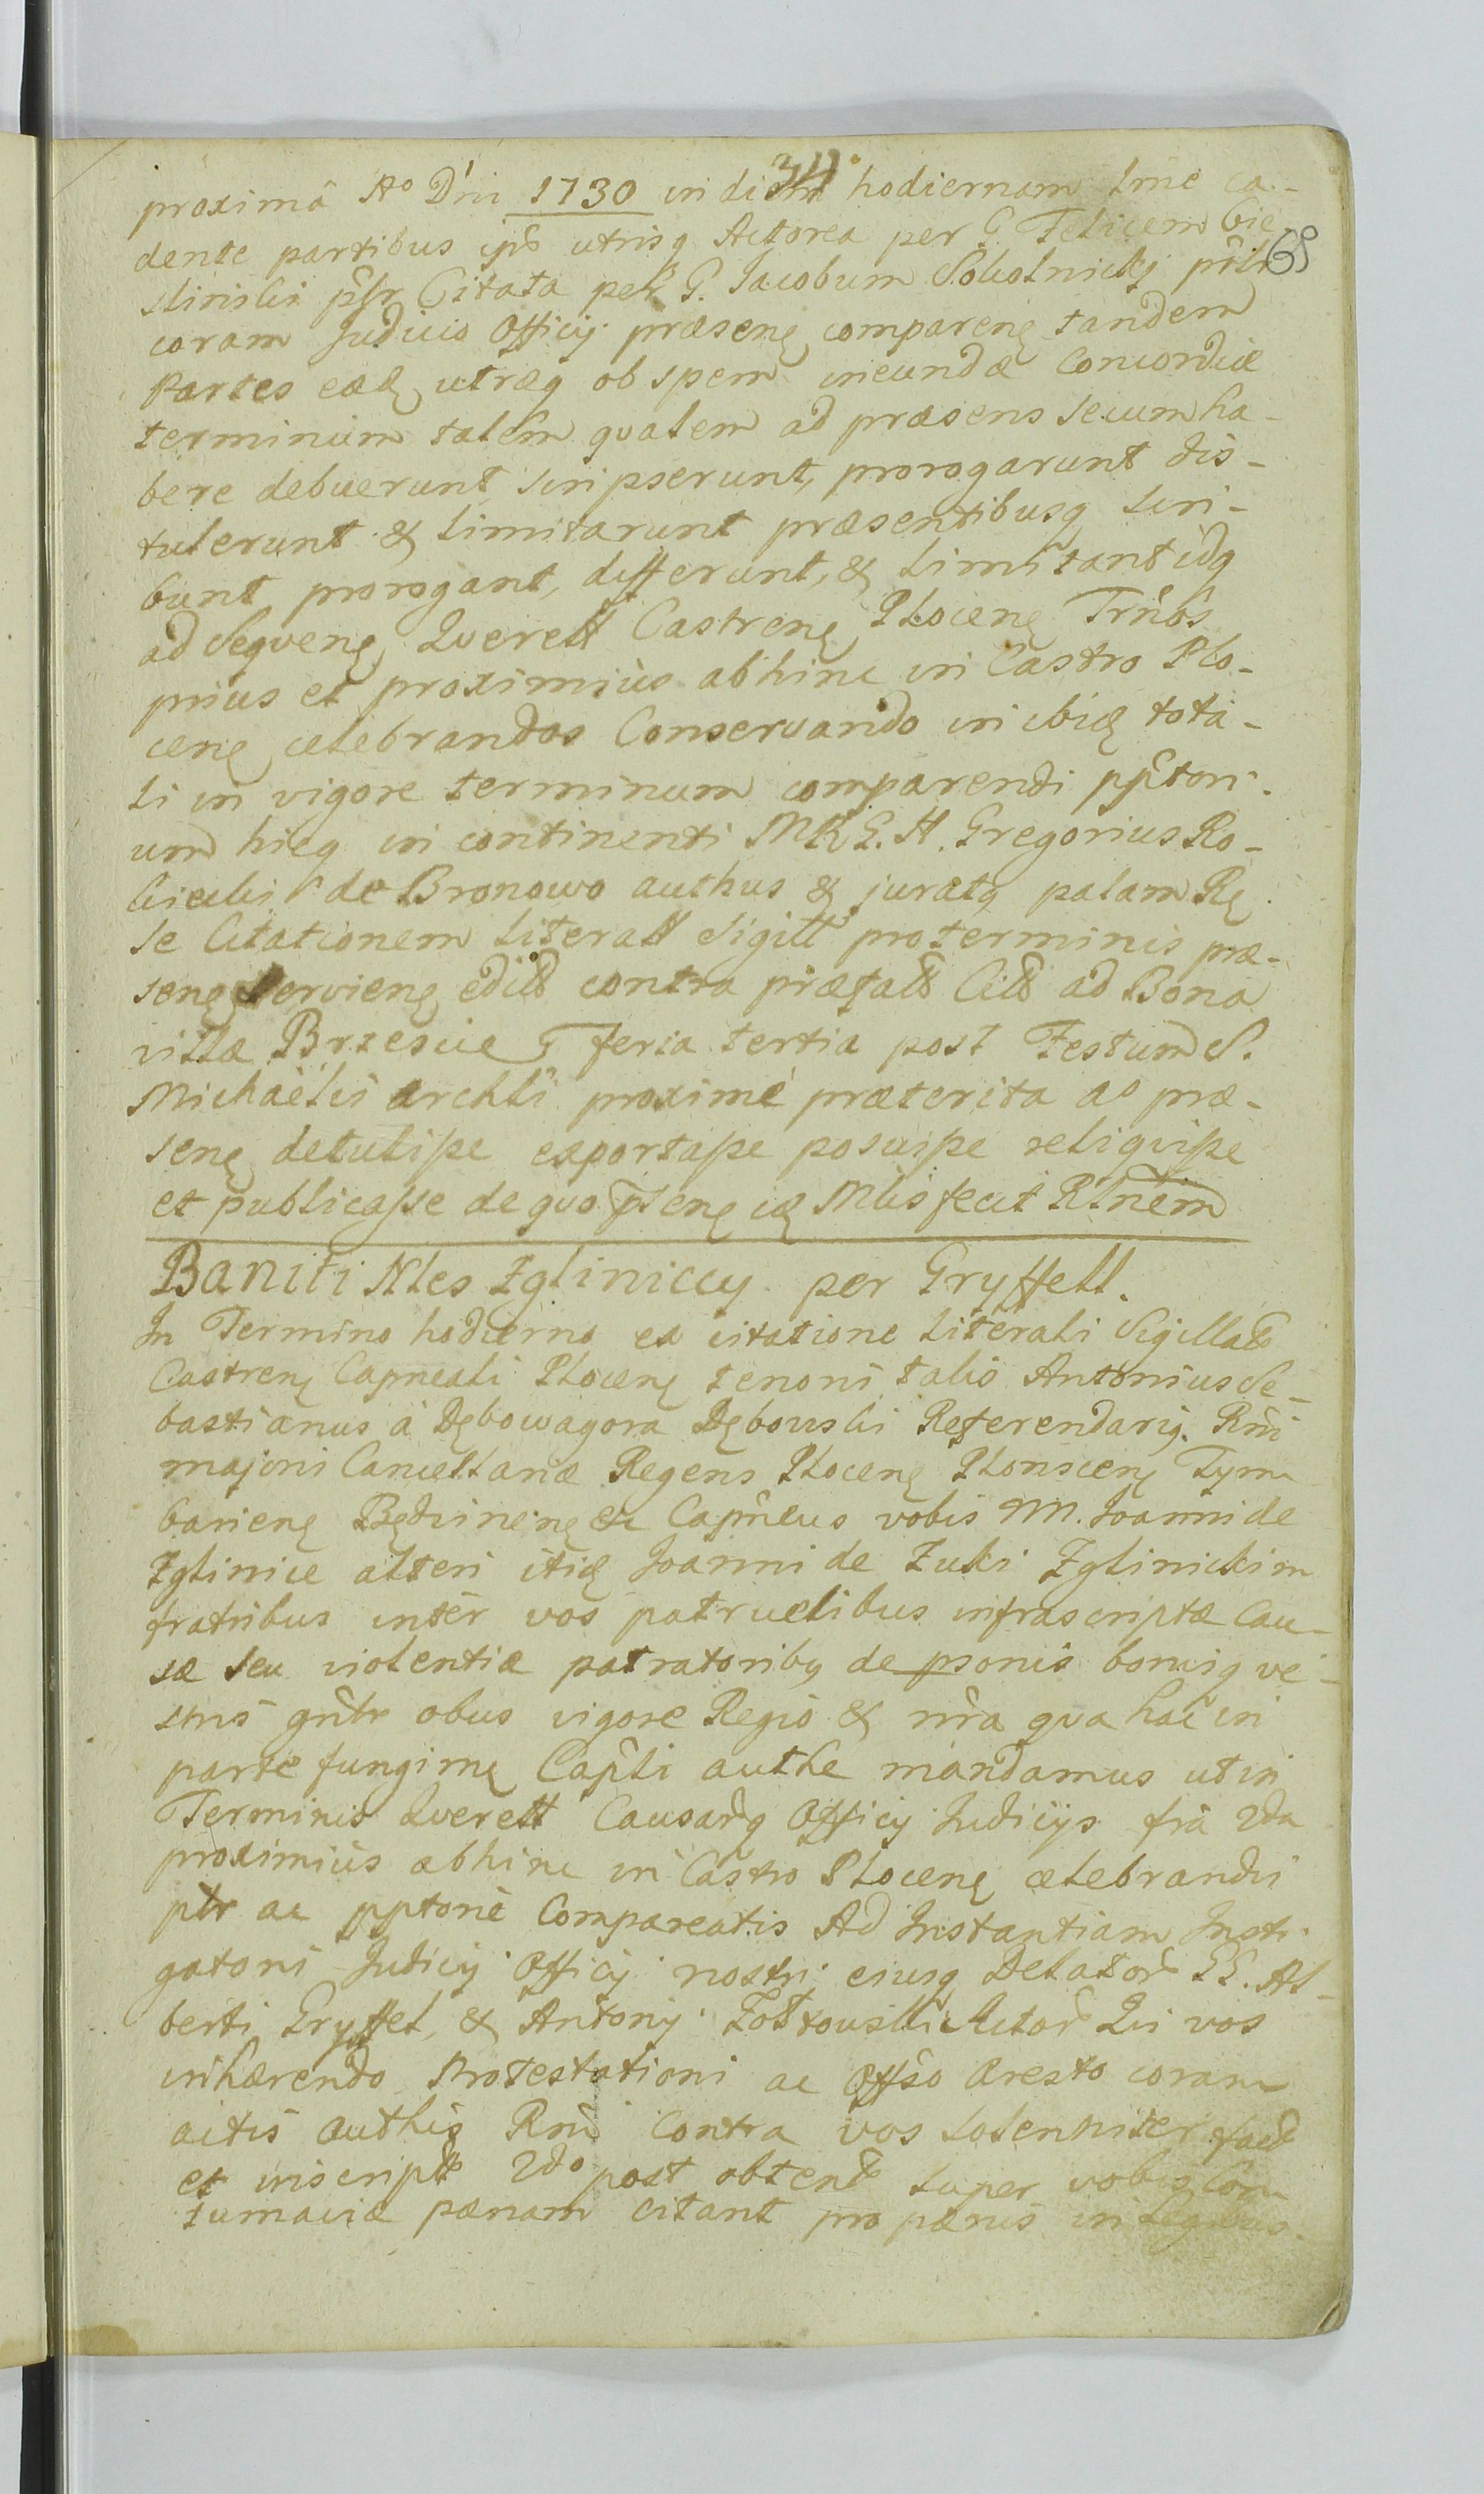 34
proximâ Aº Dñi 1730 in diem hodiernam lme ca-
68
dente partibus ipŝ utrisq Actorea per G. Felicem Bie
slinski pŝlr Citata per G. Jacobum Sokolnicky pŝlr
coram Judicio Officÿ præsenę comparenę tandem
Partes eædę utræq ob spem ineundæ Concordiæ
terminum talem qvalem ad præsens secum ha-
bere debuerunt scripserunt, prorogarunt dis-
tulerunt & limitarunt præsentibusq scri-
bunt prorogant, differunt, & limitant idq
ad seqvenę Qverell Castrenę Plocenę Trños
prius et proximiùs abhinc in Castro Plo-
cenę celebrandos Conservando in ibidę tota-
li in vigore terminum comparendi pptori-
um hicq in continenti M R G. H. Gregorius Ro-
kicki de Bronowo authus & juratq palam Rę
se Citationem literall Sigill pro terminis præ-
senę servienę edită contra præfată Cită ad Bona
villæ Brzescie G feria tertia post Festum S.
Michaëlis Archli proximè præterita aº præ-
senę detulisse exportasse posuisse reliqvisse
et publicasse de qvo pŝenę idę Mlis fecit Rlñem
Baniti Nles Zgliniccy per Gryffell.
In Termino hodierno ex citatione literali Sigillată
Castrenę Capneali Plocenę tenoris talis Antonius Se-
bastianus à Dębowagora Dębowski Referendariq. Rñi
majoris Cancellariæ Regens Plocenę Plonscenę Tym
barienę Będzinenę & Capñeus vobis M. Joanni de
Zglinice alteri itidę Joanni de Zuki Zglinickim
fratribus inter vos patruelibus infrascriptæ Cau-
sæ seu violentiæ patratoribq de psonis bonisq ve-
stris gñlr obus vigore Regiô & nr̂a qva hac in
parte fungimę Capl̂i authe mandamus ut in
Terminis Qverell Causarq Officÿ Judicÿs fr̂ia 2da
proximiùs abhinc in Castro Plocenę celebrandis
plr ac pptoriè Compareatis Ad Instantiam Insti-
gatoris Judicÿ Officÿ nostri eiusq Delator GG. Al-
berti Gryffel, & Antonÿ Zołtowski Actor Qvi vos
inhærendo Protestationi ac Offŝo Aresto coram
actis authis Rñi Contra vos solenniter fact
et inscript 2do post obtent super vobis Con-
tumaciæ pænam citant pro pænis in legibus-